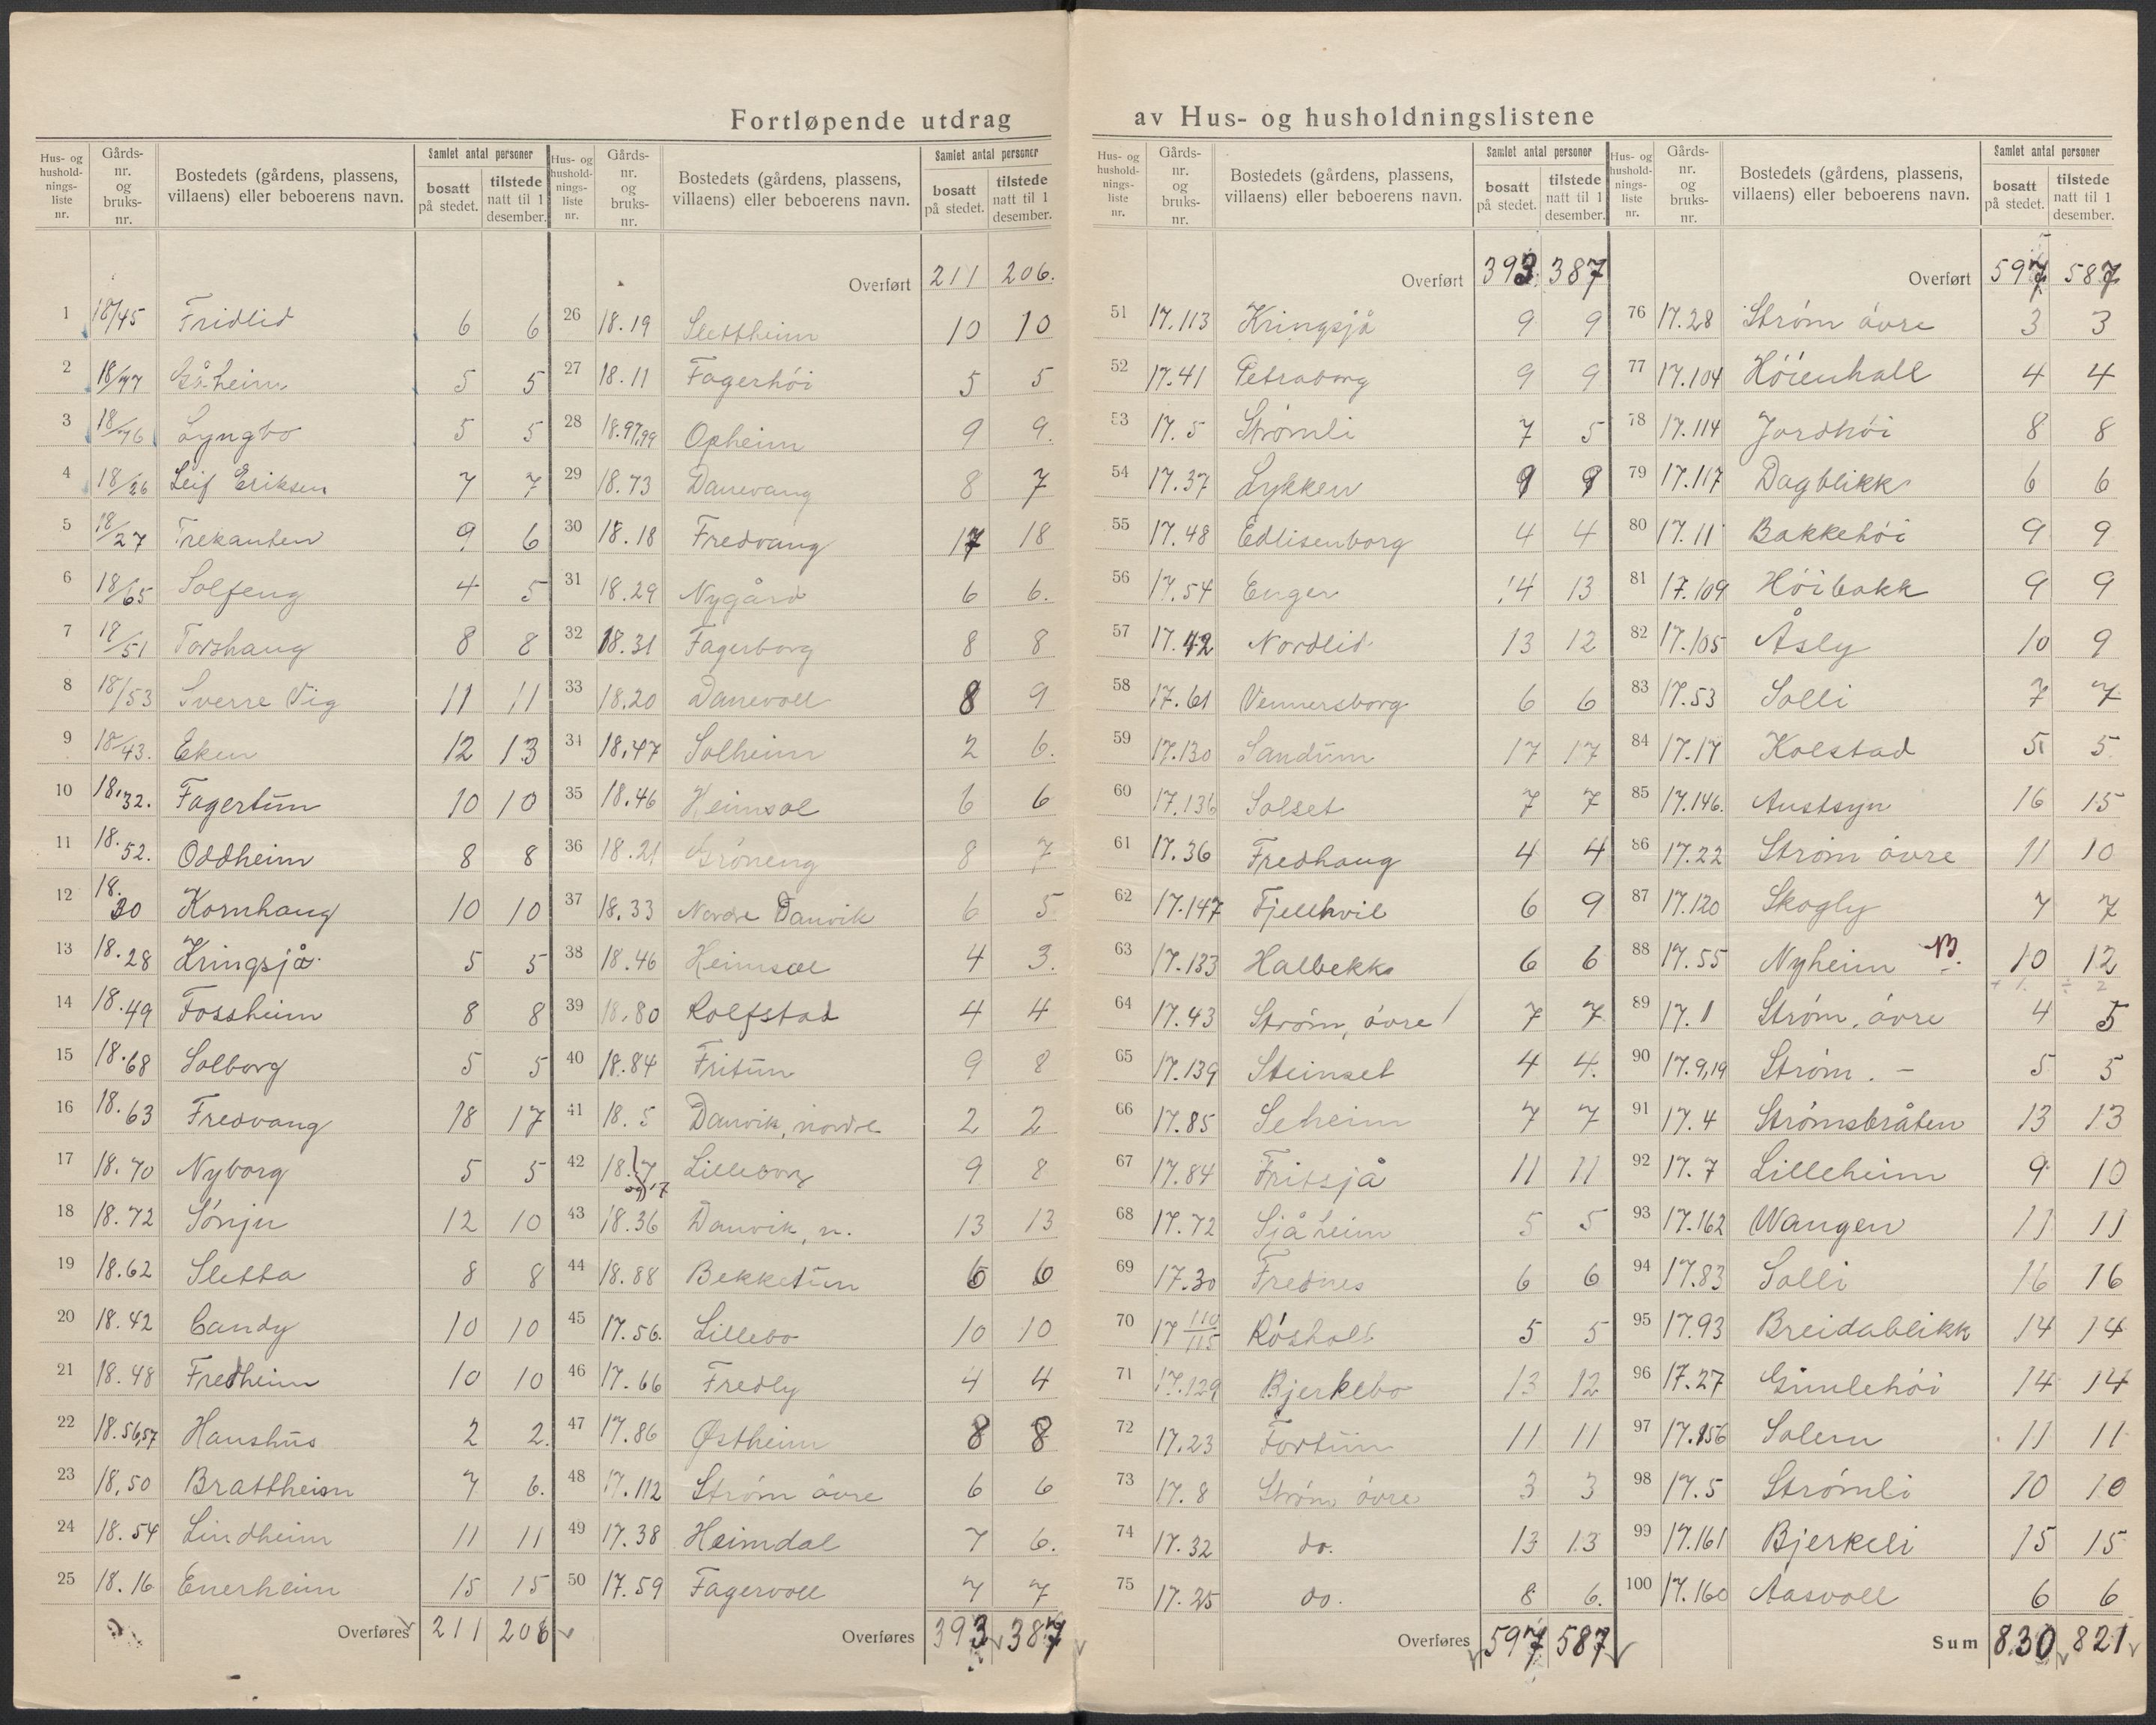 Fortløpende utdrag av Hus- og husholdningslistene
Hus- og hushold-nings-liste nr. Gårds-nr. og bruks-nr. Bostedets (gårdens, plassens, villaens) eller beboerens navn. Samlet antal personer bosatt på stedet. tilstede natt til 1 desember.
1 18/45 Fridlid 6 6
2 18/77 Gåheim 5 5
3 18/76 Lyngbo 5 5
4 18/26 Leif Eriksen 7 7
5 18/27 Trekanten 9 6
6 18/65 Solfeng 4 5
7 18/51 Torshaug 8 8
8 18/53 Sverre Vig 11 11
9 18/43. Eken 12 13
10 18.32. Fagertun 10 10
11 18.52. Oddheim 8 8
12 18.30 Kornhaug 10 10
13 18.28 Kringsjå 5 5
14 18.49 Fossheim 8 8
15 18.68 Solborg 5 5
16 18.63 Fredvang 18 17
17 18.70 Nyborg 5 5
18 18.72 Sønju 12 10
19 18.62 Sletta 8 8
20 18.42 Candy 10 10
21 18.48 Fredheim 10 10
22 18.56,57 Hanshus 2 2.
23 18,50 Brattheim 7 6.
24 18.54 Lindheim 11 11
25 18.16 Enerheim 15 15
Overføres 211 206
Hus- og hushold-nings-liste nr. Gårds-nr. og bruks-nr. Bostedets (gårdens, plassens, villaens) eller beboerens navn. Samlet antal personer bosatt på stedet. tilstede natt til 1 desember.
Overført 211 206.
26 18.19 Slettheim 10 10
27 18.11 Fagerhöi 5 5
28 18.97,99 Opheim 9 9.
29 18.73 Danevang 8 7
30 18.18 Fredvang 17 18
31 18.29 Nygård 6 6.
32 18.31 Fagerborg 8 8
33 18.20 Danevoll 8 9
34 18.47 Solheim 2 6.
35 18.46 Heimsol 6 6
36 18.21 Gröneng 8 7
37 18.33 Nordre Danvik 6 5
38 18.46 Heimsol 4 3.
39 18.80 Rolfstad 4 4
40 18.84 Fritun 9 8
41 18.5 Danvik, nordre 2 2
42 Lilleborg 9 8
43 18.36 Danvik, n. 13 13
44 18.88 Bekketun 6 6
45 17.56. Lillebo 10 10
46 17.66 Fredly 4 4
47 17.86 Østheim 8 8
48 17.112 Ström övre 6 6
49 17.38 Heimdal 7 6.
50 17.59 Fagervoll 7 7
Overføres 393 387
Hus- og hushold-nings-liste nr. Gårds-nr. og bruks-nr. Bostedets (gårdens, plassens, villaens) eller beboerens navn. Samlet antal personer bosatt på stedet. tilstede natt til 1 desember.
Overført 393 387
51 17.113 Kringsjå 9 9
52 17.41 Petraborg 9 9
53 17.5 Strömli 7 5
54 17.37 Lykken 9 9
55 17.48 Edlisenborg 4 4
56 17.54 Enger 14 13
57 17.42 Nordlid 13 12
58 17.61 Vennersborg 6 6
59 17.130 Sandum 17 17
60 17.136 Solset 7 7
61 17.36 Fredhaug 4 4
62 17.147 Fjellhvil 6 9
63 17.133 Halbekk 6 6
64 17.43 Ström, övre 7 7
65 17.139 Steinset 4 4.
66 17.85 Seheim 7 7
67 17.84 Fritsjå 11 11
68 17.72 Sjåheim 5 5
69 17.30 Frednes 6 6
70 17 110/115 Rösholt 5 5
71 17.129 Bjerkebo 13 12
72 17.23 Fortun 11 11
73 17.8 Ström övre 3 3
74 17.32 do. 13 13
75 17.25 do. 8 6.
Overføres 597 587
Hus- og hushold-nings-liste nr. Gårds-nr. og bruks-nr. Bostedets (gårdens, plassens, villaens) eller beboerens navn. Samlet antal personer bosatt på stedet. tilstede natt til 1 desember.
Overført 597 587
76 17.28 Ström övre 3 3
77 17.104 Höienhall 4 4
78 17.114 Jordhöi 8 8
79 17.117 Dagblikk 6 6
80 17.11 Bakkehöi 9 9
81 17.109 Höibakk 9 9
82 17.105 Åsly 10 9
83 17.53 Solli 7 7
84 17.17 Kolstad 5 5
85 17.146. Austsyn 16 15
86 17.22 Ström övre 11 10
87 17.120 Skogly 7 7
88 17.55 Nyheim 10 12
89 17.1 Ström, övre 4 5
90 17.9,19 Ström. - 5 5
91 17.4 Strömsbråten 13 13
92 17.7 Lilleheim 9 10
93 17.162 Wangen 11 11
94 17.83 Solli 16 16
95 17.93 Breidablikk 14 14
96 17.27 Gimlehöi 14 14
97 17.156 Solem 11 11
98 17.5 Strömli 10 10
99 17.161 Bjerkeli 15 15
100 17.160 Aasvoll 6 6
Sum 830 821